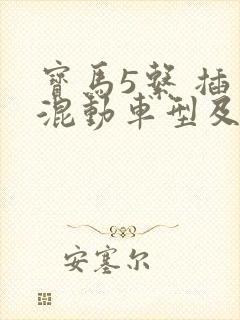 寶馬5繫 插
混動車型及
安塞尔